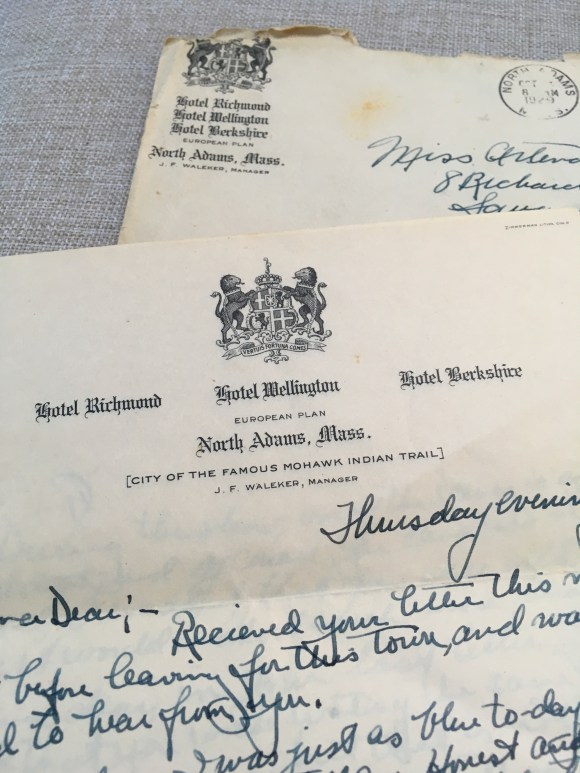 Hotel Richmond
Hotel Wellington
Hotel Berkshire
EUROPEAN PLAN
North Adams, Mass.
J. F. WALEKER, MANAGER
NORTH ADAMS
1929
Miss
8 Richard
VIRTUTIS FORTUNA COMES
Hotel Richmond Hotel Wellington Hotel Berkshire
EUROPEAN PLAN
North Adams, Mass.
[CITY OF THE FAMOUS MOHAWK INDIAN TRAIL]
J. F. WALEKER, MANAGER
Thursday evenin
Dear; - Recieved your letter this
before leaving for this town, and wa
to hear from you.
was just as blue to-day
Honest and